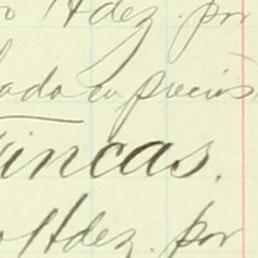 Hdez. por
en precios
incas.
Hdez. por